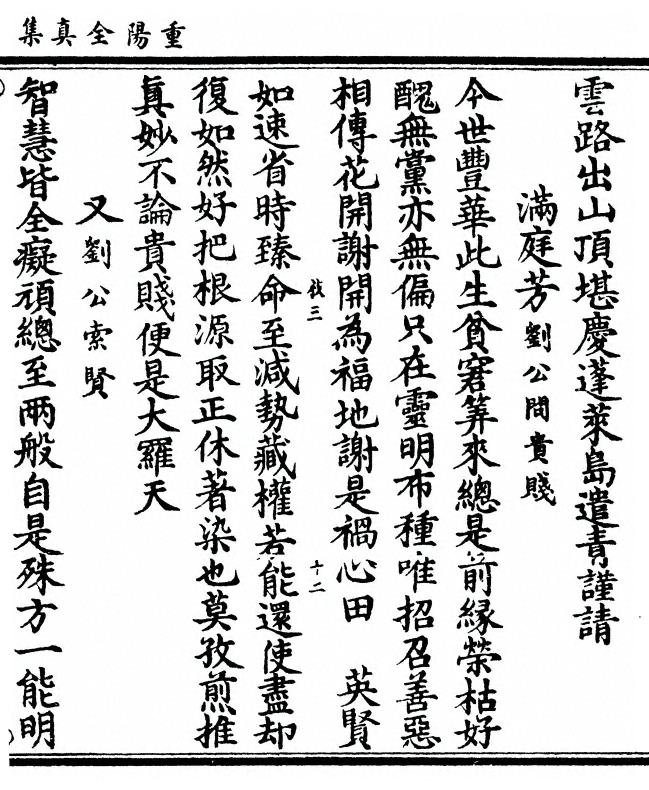 重陽全真集
雲路出山頂堪慶蓬萊島遣青謹請
滿庭芳劉公問貴賤
今世豐華此生貧窘筭來總是前緣榮枯好
醜無黨亦無偏只在靈明布種唯招召善惡
相傳花開謝開為福地謝是禍心田　英賢
伎三　十二
如速省時臻命至減勢藏權若能還使盡却
復如然好把根源取正休著染也莫孜煎推
真妙不論貴賤便是大羅天
又劉公索賢
智慧皆全癡頑總至兩般自是殊方一能明